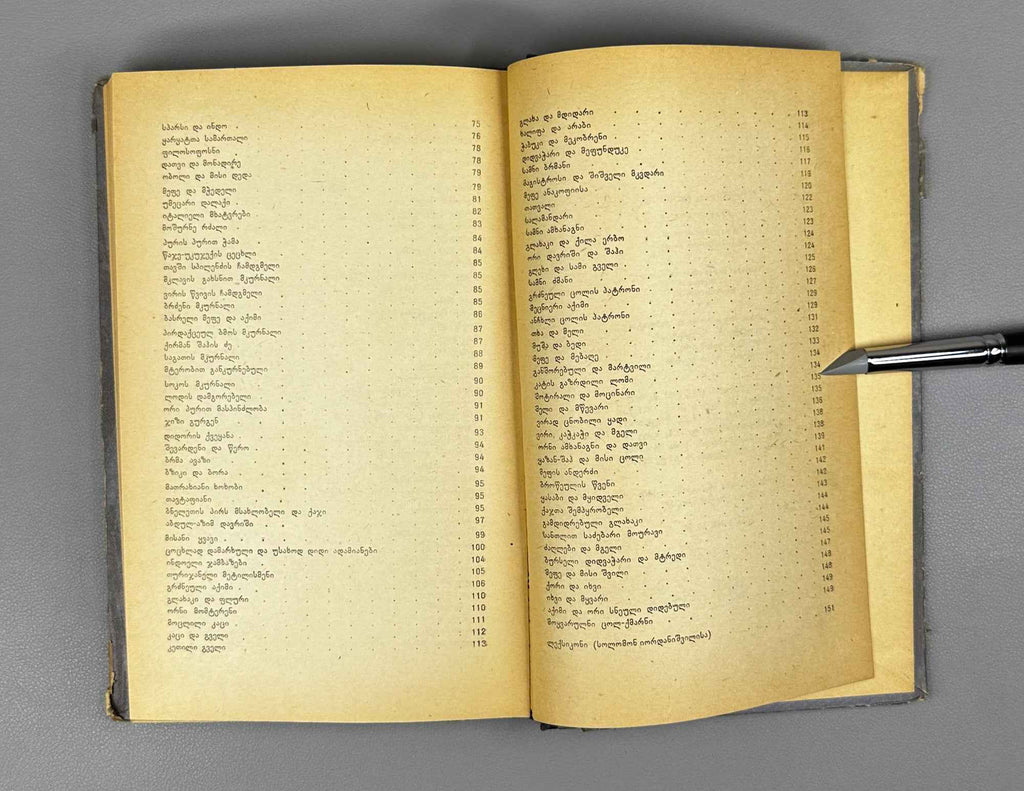 სპარსი და ინდო . 75
ყარყატთა სამართალი 76
ფილოსოფოსნი 78
დათვი და მონადირე 78
ობოლი და მისი დედა 79
მეფე და მჭედელი 79
უმეცარი დალაქი . 81
იტალიელი მხატვრები 82
მოშურნე რძალი . 83
პურის პურით ჭამა 84
84
თავში სპილენძის ჩამდგმელი 85
მკლავის გახსნით მკურნალი 85
ვირის წვივის ჩამდგმელი 85
ბრძენი მკურნალი 85
ბასრელი მეფე და აქიმი 86
პირდაქცეულ ხმოს მკურნალი 87
ქირმან შაჰის ძე 87
საგათის მკურნალი 88
მტერობით განკურნებული 89
სოკოს მკურნალი 90
ლოდის დამგორებელი 90
ორი პურით მასპინძლობა 91
ჯიზი გურგენ 91
დიდორის ქვეყანა . 93
შევარდენი და წერო 94
ბრმა ავაზი 94
ბზიკი და ბორა 94
მათრახიანი ხოხობი 95
თავტაფიანი 95
ბნელეთის პირს მსახლობელი და ქაჯი 95
აბდულ-აზიმ დავრიში 97
მისანი ყვავი 99
ცოცხლად დამარხული და უსახოდ დიდი ადამიანები 100
ინდოელი ჯამბაზები 104
თურიჯანელი მეტილისმენი 105
გრძნეული აქიმი 106
გლახაკი და ფლური 110
ორნი მომტერენი 110
მოცლილი კაცი 111
კაცი და გველი 112
კეთილი გველი 113
გლახა და მდიდარი 113
ხალიფა და არაბი 114
ჭაბუკი და მეკობრენი 115
დიდვაჭარი და მეფუნდუკე 116
სამნი ბრმანი 117
მაგისტროსი და შიშველი მკვდარი 119
მეფე ანაკოფიისა 120
თათვალი 122
სალამანდარი 123
სამნი ამხანაგნი 123
გლახაკი და ქილა ერბო 124
ორი დავრიში და შაჰი 124
გლეხი და სამი გველი 125
სამნი ძმანი 126
გრძნეული ცოლის პატრონი 127
მეცნიერი აქიმი 129
ანჩხლი ცოლის პატრონი 129
თხა და მელი 131
მუშა და ბედი 132
მეფე და მებაღე 133
განშორებული და მარტვილი 134
კატის გაზრდილი ლომი 134
მოტირალი და მოცინარი 135
მელი და მწევარი 135
ვირად ცნობილი ყადი 136
ვირი, კაჭკაჭი და მგელი 138
ორნი ამხანაგნი და დათვი 138
ყაზან-შაჰ და მისი ცოლი 139
მეფის ანდერძი 141
ბროწეულის წვენი 142
ყასაბი და მყიდველი 142
ქაჯთა შემპყრობელი 143
გამდიდრებული გლახაკი 144
სანთლით საძებარი მოურავი 144
ძაღლები და მგელი 145
ბურსელი დიდვაჭარი და მტრედი 145
მეფე და მისი შვილი 147
ქორი და იხვი 148
იხვი და მყვარი 148
აქიმი და ორი სნეული დიდებული 149
მოყვარულნი ცოლ-ქმარნი 149
ლექსიკონი (სოლომონ იორდანიშვილისა) 151